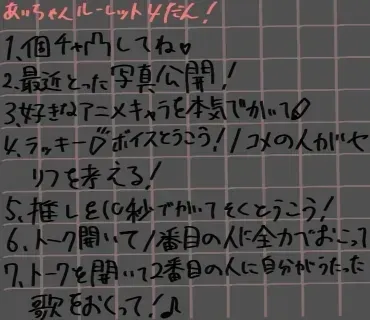 あいちゃんルーレット4だん!
1.個チャ凸してね♡
2.最近とった写真公開!
3.好きなアニメキャラを本気でかいて
4.ラッキー♡ボイスとうこう!1コメの人がセ
リフを考える!
5.推しを10秒でかいてそくとうこう!
6.トーク開いて1番目の人に全力でおこって
7.トークを開いて2番目の人に自分がうたった
歌をおくって!♪